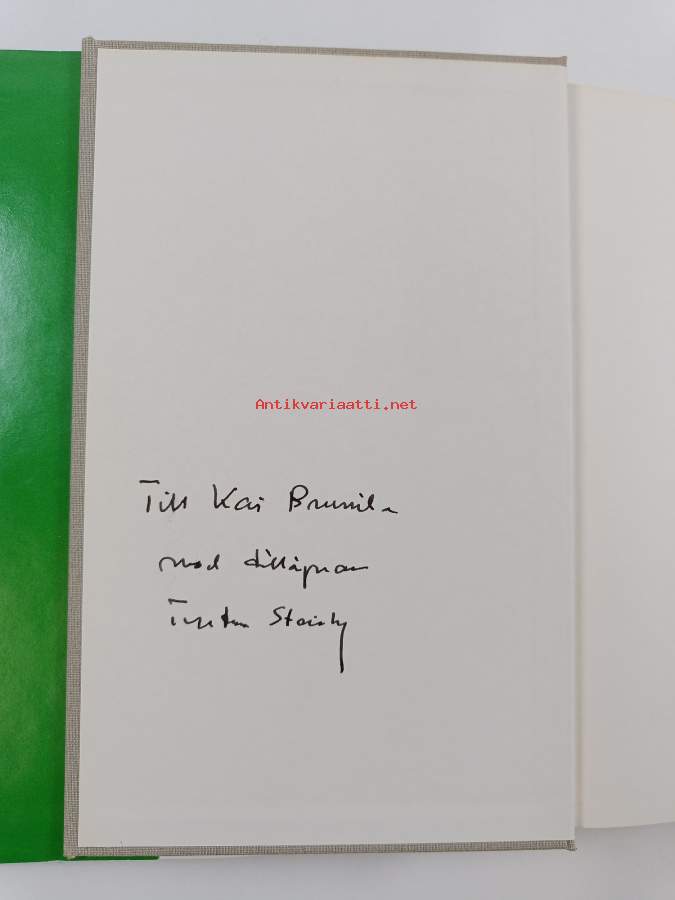 Antikvariaatti.net
Till Kai Brunila
med tillägnan
Torsten Steinby